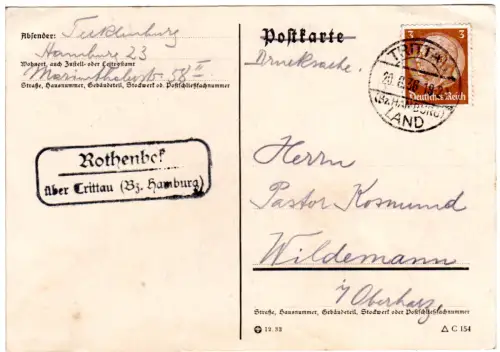 Absender: Tecklenburg
Hamburg 23
Wohnort, auch Zustell- oder Leitpostamt
58 II
Straße, Hausnummer, Gebäudeteil, Stockwerk od. Postschließfachnummer
Rothenbek
über Trittau (Bz. Hamburg)
Postkarte
Drucksache.
3 3
Deutsches Reich
TRITTAU
(BZ. HAMBURG)
LAND
Herrn
Pastor Kosmund
Wildemann
i/ Oberharz.
Straße, Hausnummer, Gebäudeteil, Stockwerk oder Postschließfachnummer
C 154